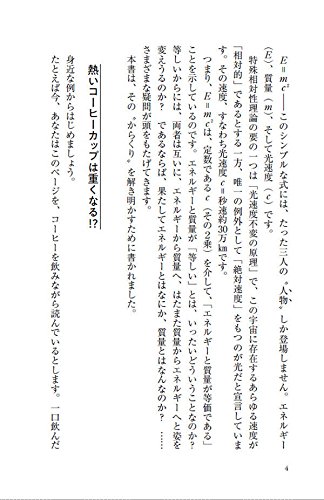 E＝mc²――このシンプルな式には、たった三人の〝人物〟しか登場しません。エネルギー
（E）、質量（m）、そして光速度（c）です。
特殊相対性理論の要の一つは「光速度不変の原理」で、この宇宙に存在するあらゆる速度が
「相対的」であるとする一方、唯一の例外として「絶対速度」をもつのが光だと宣言していま
す。その速度、すなわち光速度c＝秒速約30万㎞です。
つまり、E＝mc²は、定数であるc（その2乗）を介して、「エネルギーと質量が等価である」
ことを示しているのです。エネルギーと質量が「等しい」とは、いったいどういうことなのか？
等しいからには、両者は互いに、エネルギーから質量へ、はたまた質量からエネルギーへと姿を
変えうるのか？　であるならば、果たしてエネルギーとはなにか、質量とはなんなのか？……
さまざまな疑問が頭をもたげてきます。
本書は、その〝からくり〟を解き明かすために書かれました。
熱いコーヒーカップは重くなる!?
身近な例からはじめましょう。
たとえば今、あなたはこのページを、コーヒーを飲みながら読んでいるとします。一口飲んだ
4